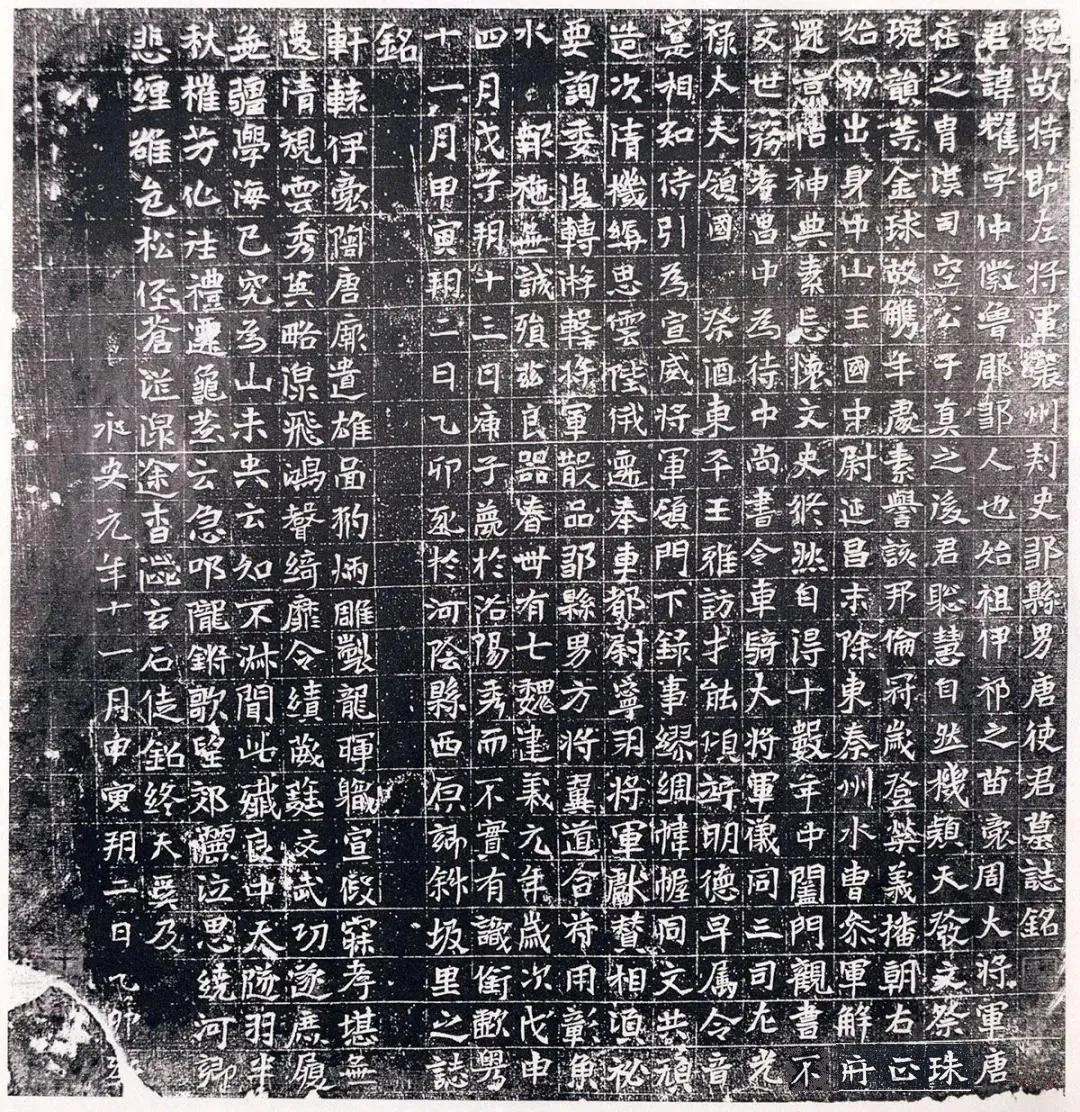 魏故持節左將軍襄州刾史邹縣男唐使君墓誌銘
君諱耀字仲徽魯郡邹人也始祖伊祁之苗裔周大將軍唐
之胄漢司空公子真之後君聡慧自然機頴天發文祭珠
琬韻荣金球故觹年處素譽該邦倫冠歲登榮義播朝右正
始初出身中山王國中尉延昌末除東秦州水曹叅軍解府
還悟神典素忘懷文史倏然自淂十數年中闔門觀書不
交世務孝昌中為待中尚書令車騎大將軍儀同三司左光
禄太夫領國祭酒東平王雅訪才能傾誶明德早属令音
寔相知待引為宣威將軍領門下録事繆綢幃幄同文共頑
造次清機緝思雲陛俄遷奉車都尉寧羽將軍獻替相湏
要詢委湿轉游擊將軍散品邹縣男方將翼道合符用彰魚
水報施無誠殞玆良器春丗有七魏建義元年歲次戊申
四月戊子朔十三日庚子薨於洛陽秀而不實有識銜歔粤
十一月甲寅朔二日乙卯死扵河陰縣西原鄉斜坂里之誌
銘
軒轅伊裔陶唐廓遺雄啚豹炳雕製龍暉職宣假寐孝堪無
違清規雲秀英略湿飛鴻聲綺靡令績葳蕤文武功遂庶履
無疆學海已究為山未央云知不淋間此殲良中天隧羽半
秋摧芳化往禮遷龜蓍云急叩隴鏘歌望郊灑泣思繞河鄉
悲纏雄邑松侄蒼茫湿途杳漭玄石徒銘終天奚乃
永安元年十一月甲寅朔二日乙卯